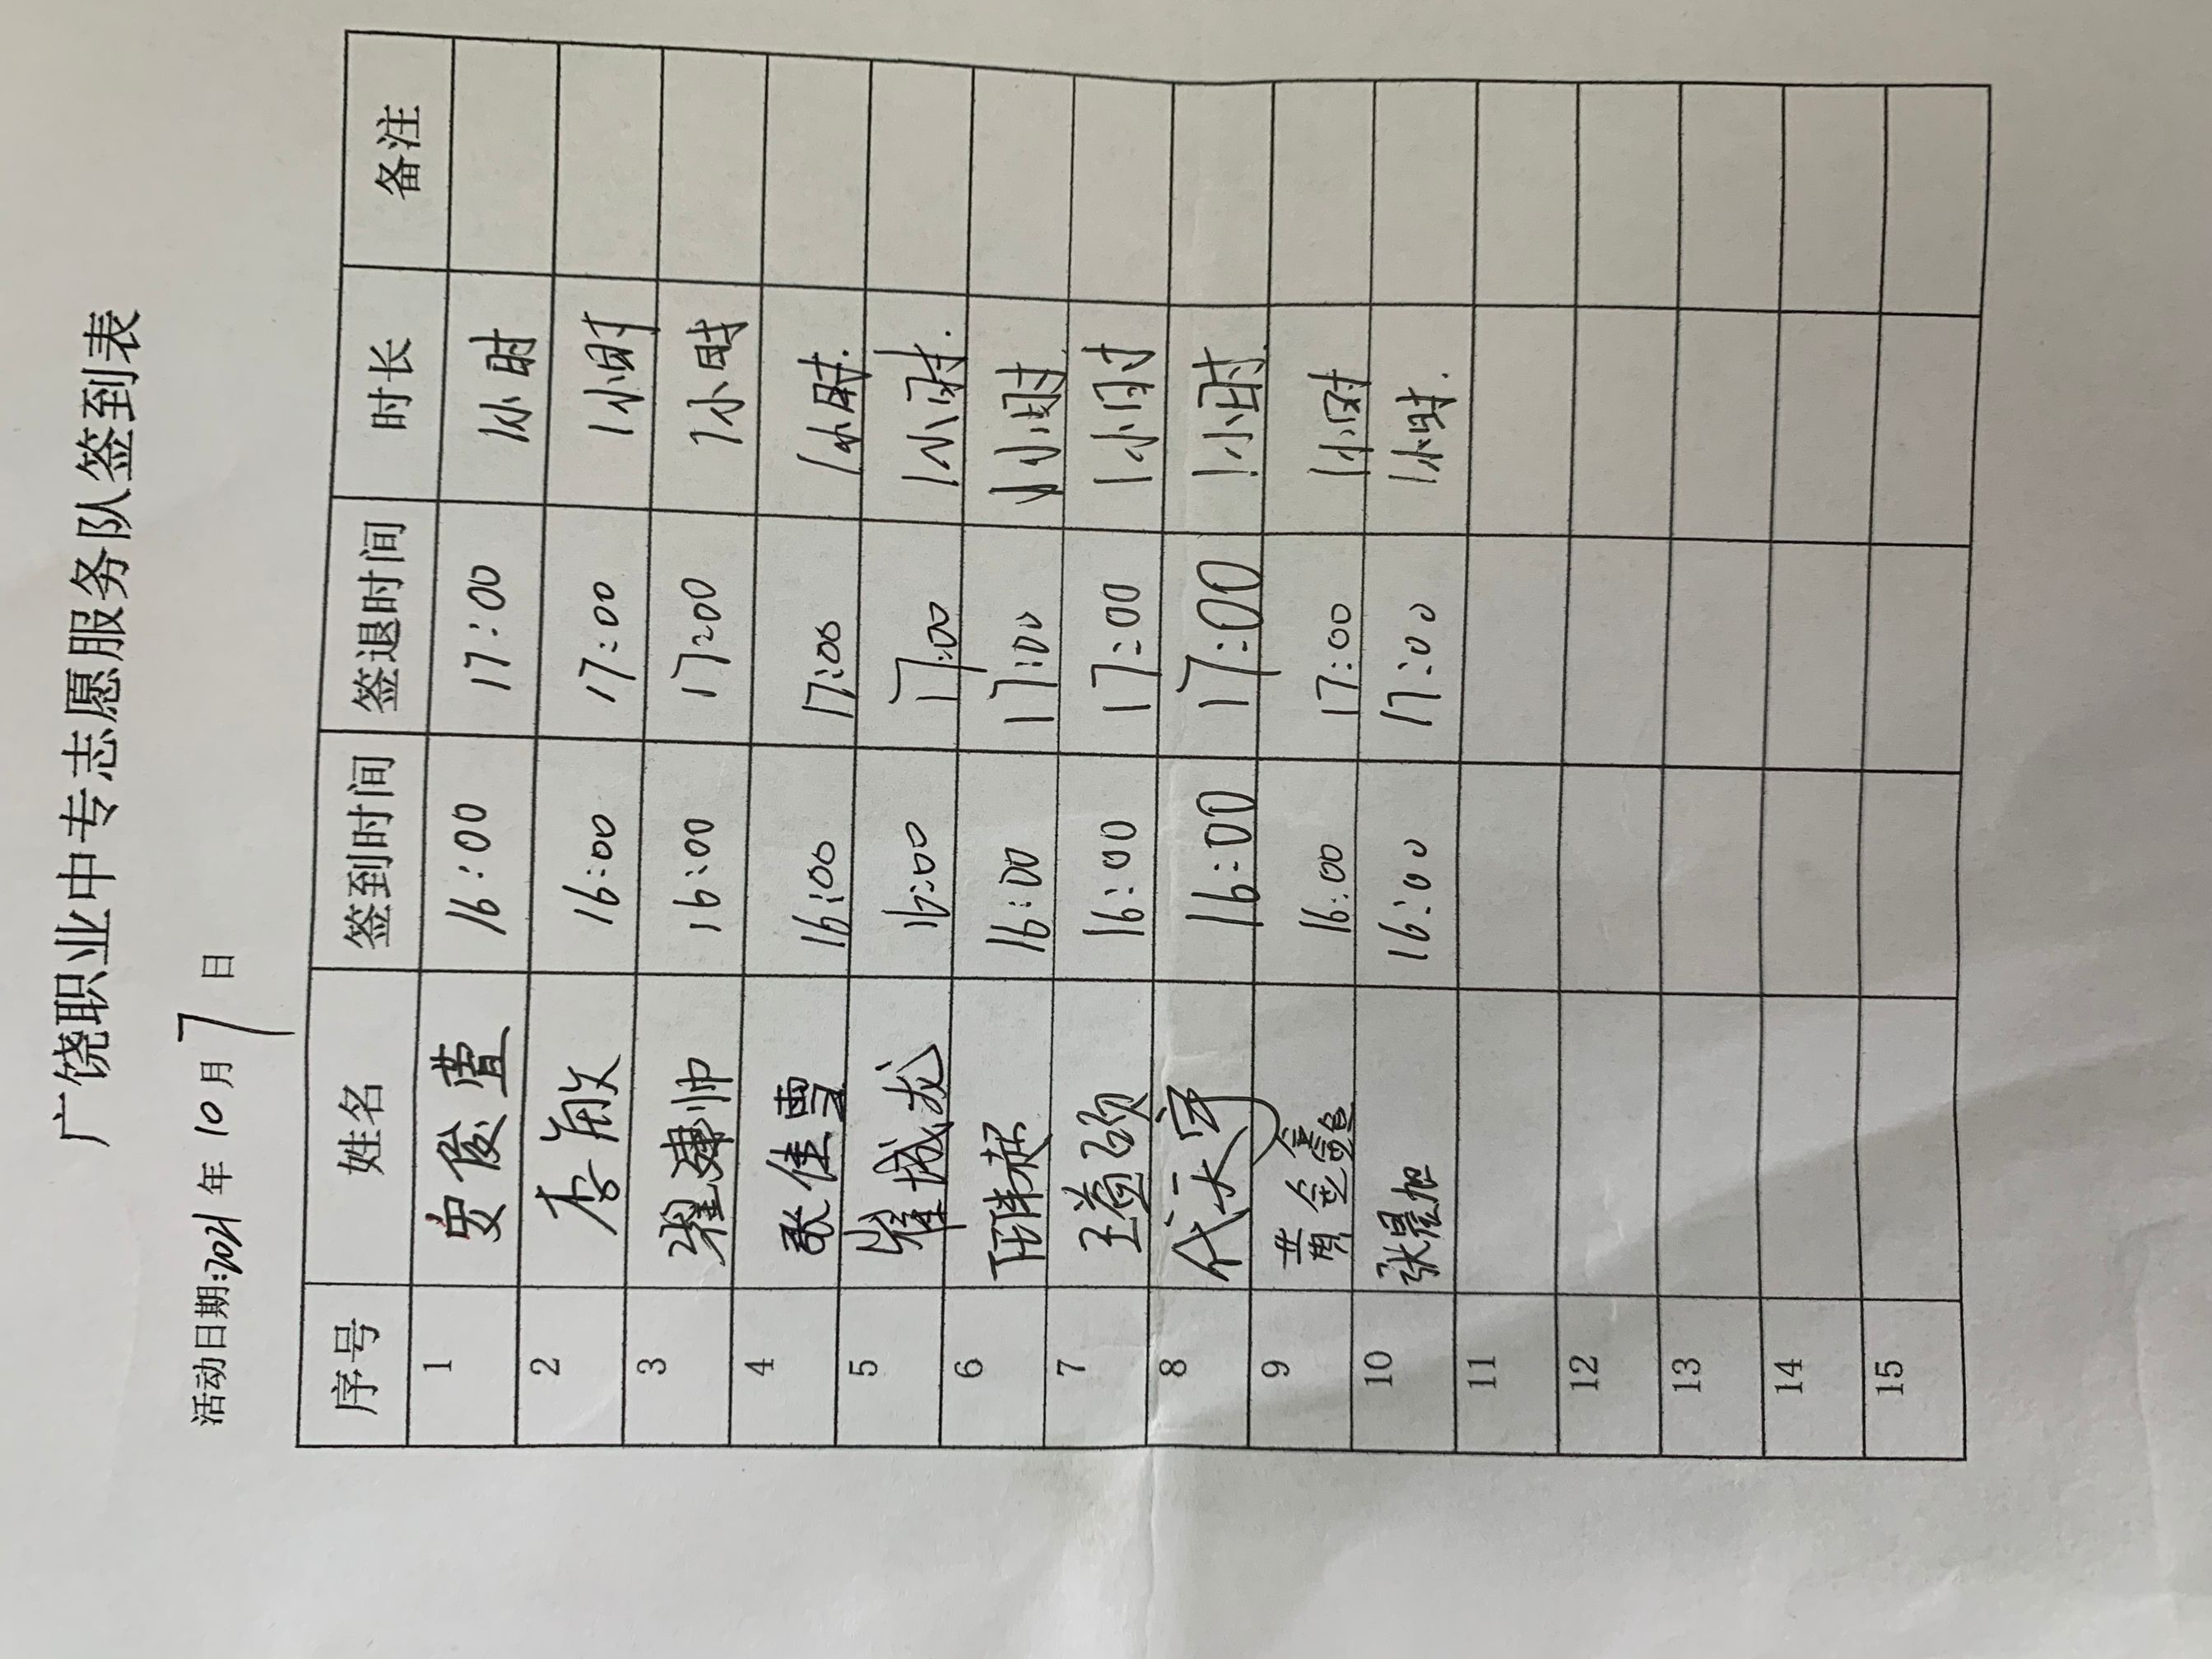 广饶职业中专志愿服务队签到表
活动日期:2021年10月7日
序号 姓名 签到时间 签退时间 时长 备注
1 安俊萱 16:00 17:00 1小时
2 李敏 16:00 17:00 1小时
3 翟建帅 16:00 17:00 1小时
4 张佳雪 16:00 17:00 1小时.
5 崔城龙 16:00 17:00 1小时.
6 16:00 17:00 1小时
7 王首硕 16:00 17:00 1小时
8 代天宇 16:00 17:00 1小时
9 黄金鑫 16:00 17:00 1小时
10 16:00 17:00 1小时.
11
12
13
14
15